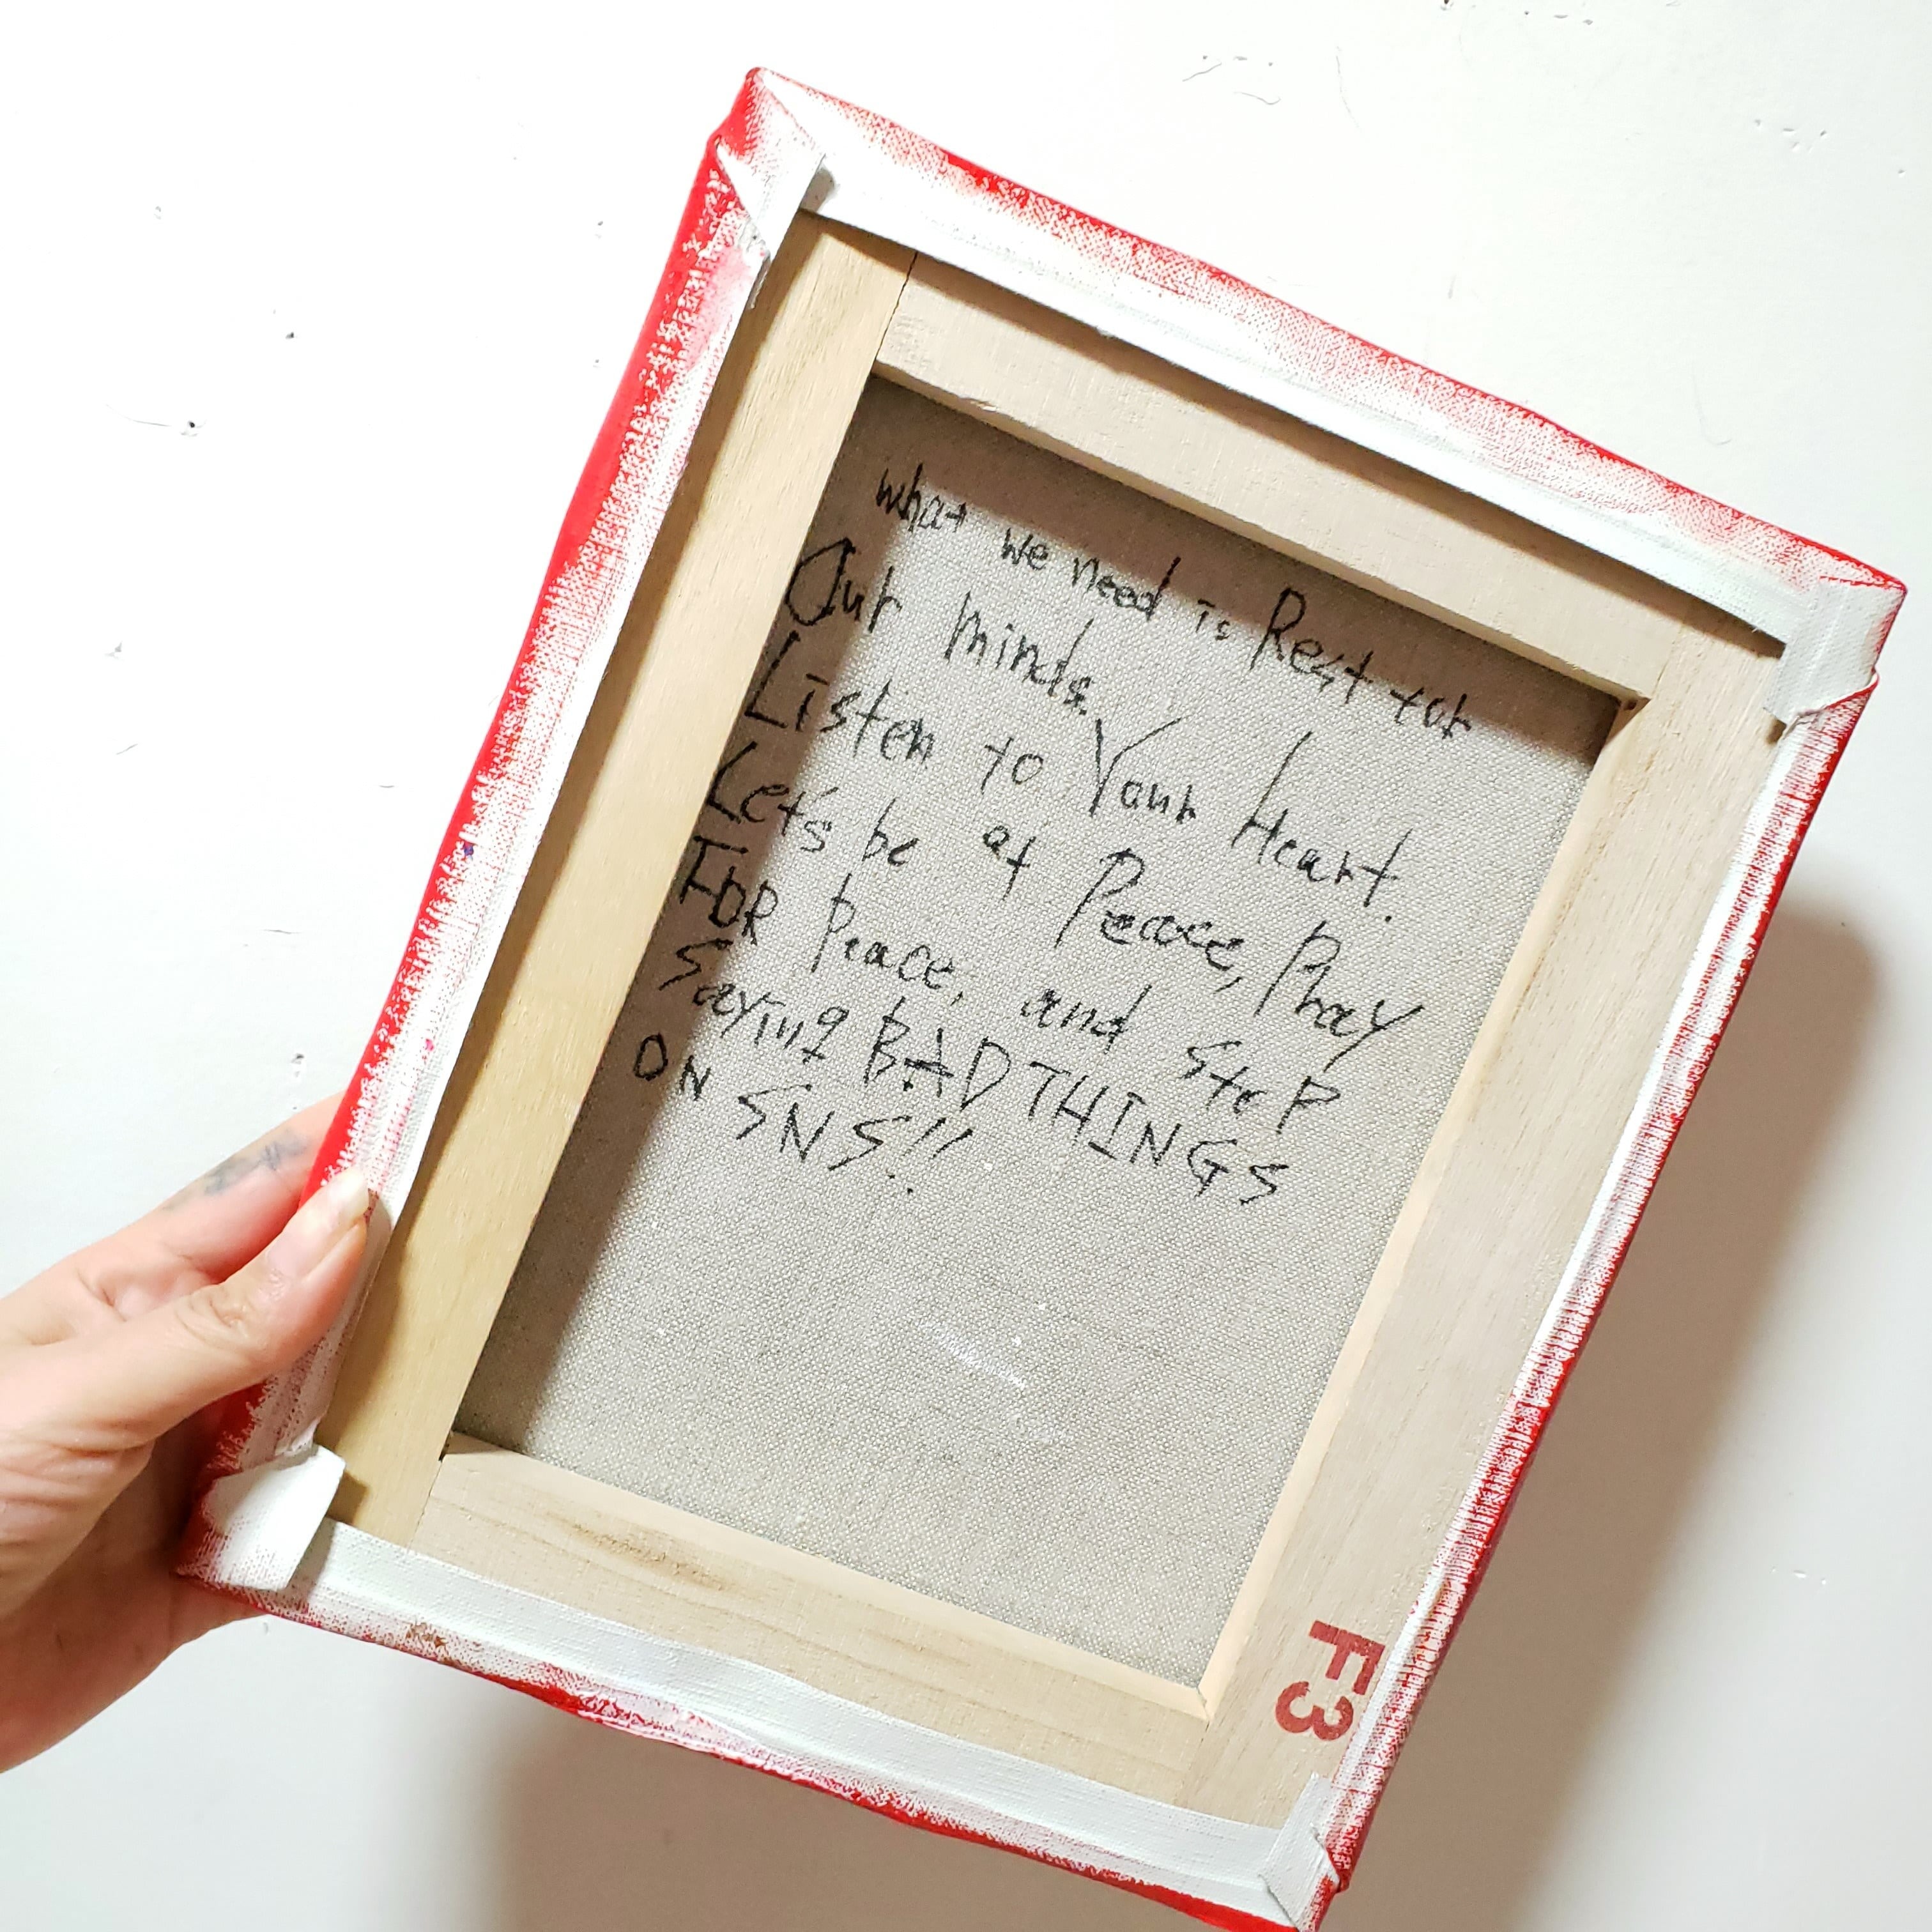 what we need is Rest for
Our minds.
Listen to Your Heart.
Let's be at Peace, Pray
FOR Peace, and stop
Saying BAD THINGS
ON SNS!!
F3